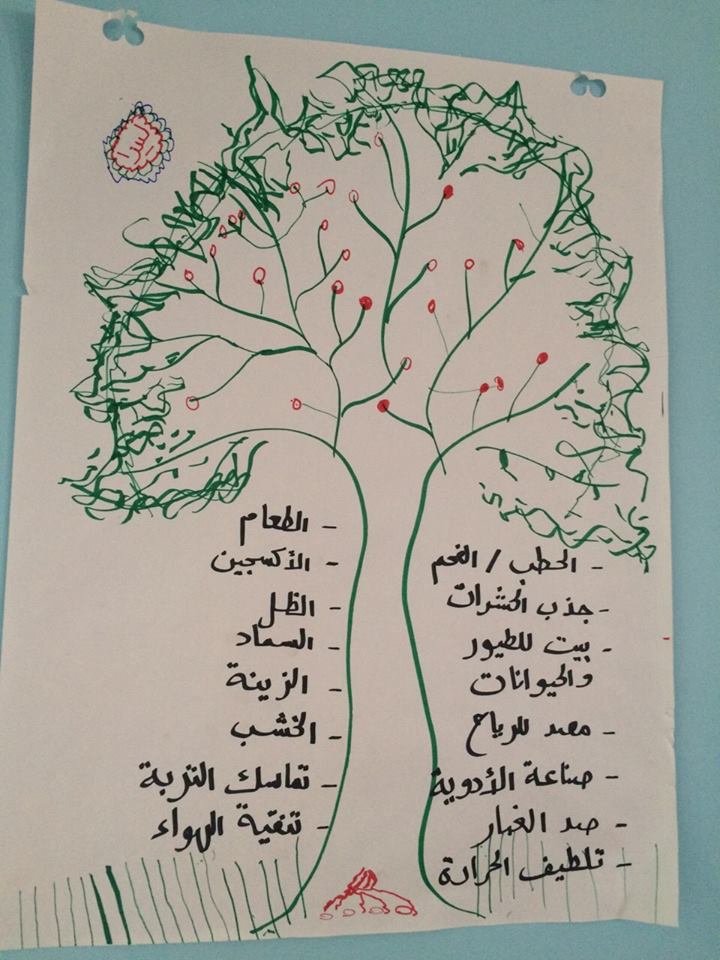 - الحطب / الفحم
- جذب الحشرات
- بيت للطيور
والحيوانات
- مصد للرياح
- صناعة الأدوية
- صد الغبار
- تلطيف الحرارة
- الطعام
- الأكسجين
- الظل
- السماد
- الزينة
- الخشب
- تماسك التربة
- تنقية الهواء